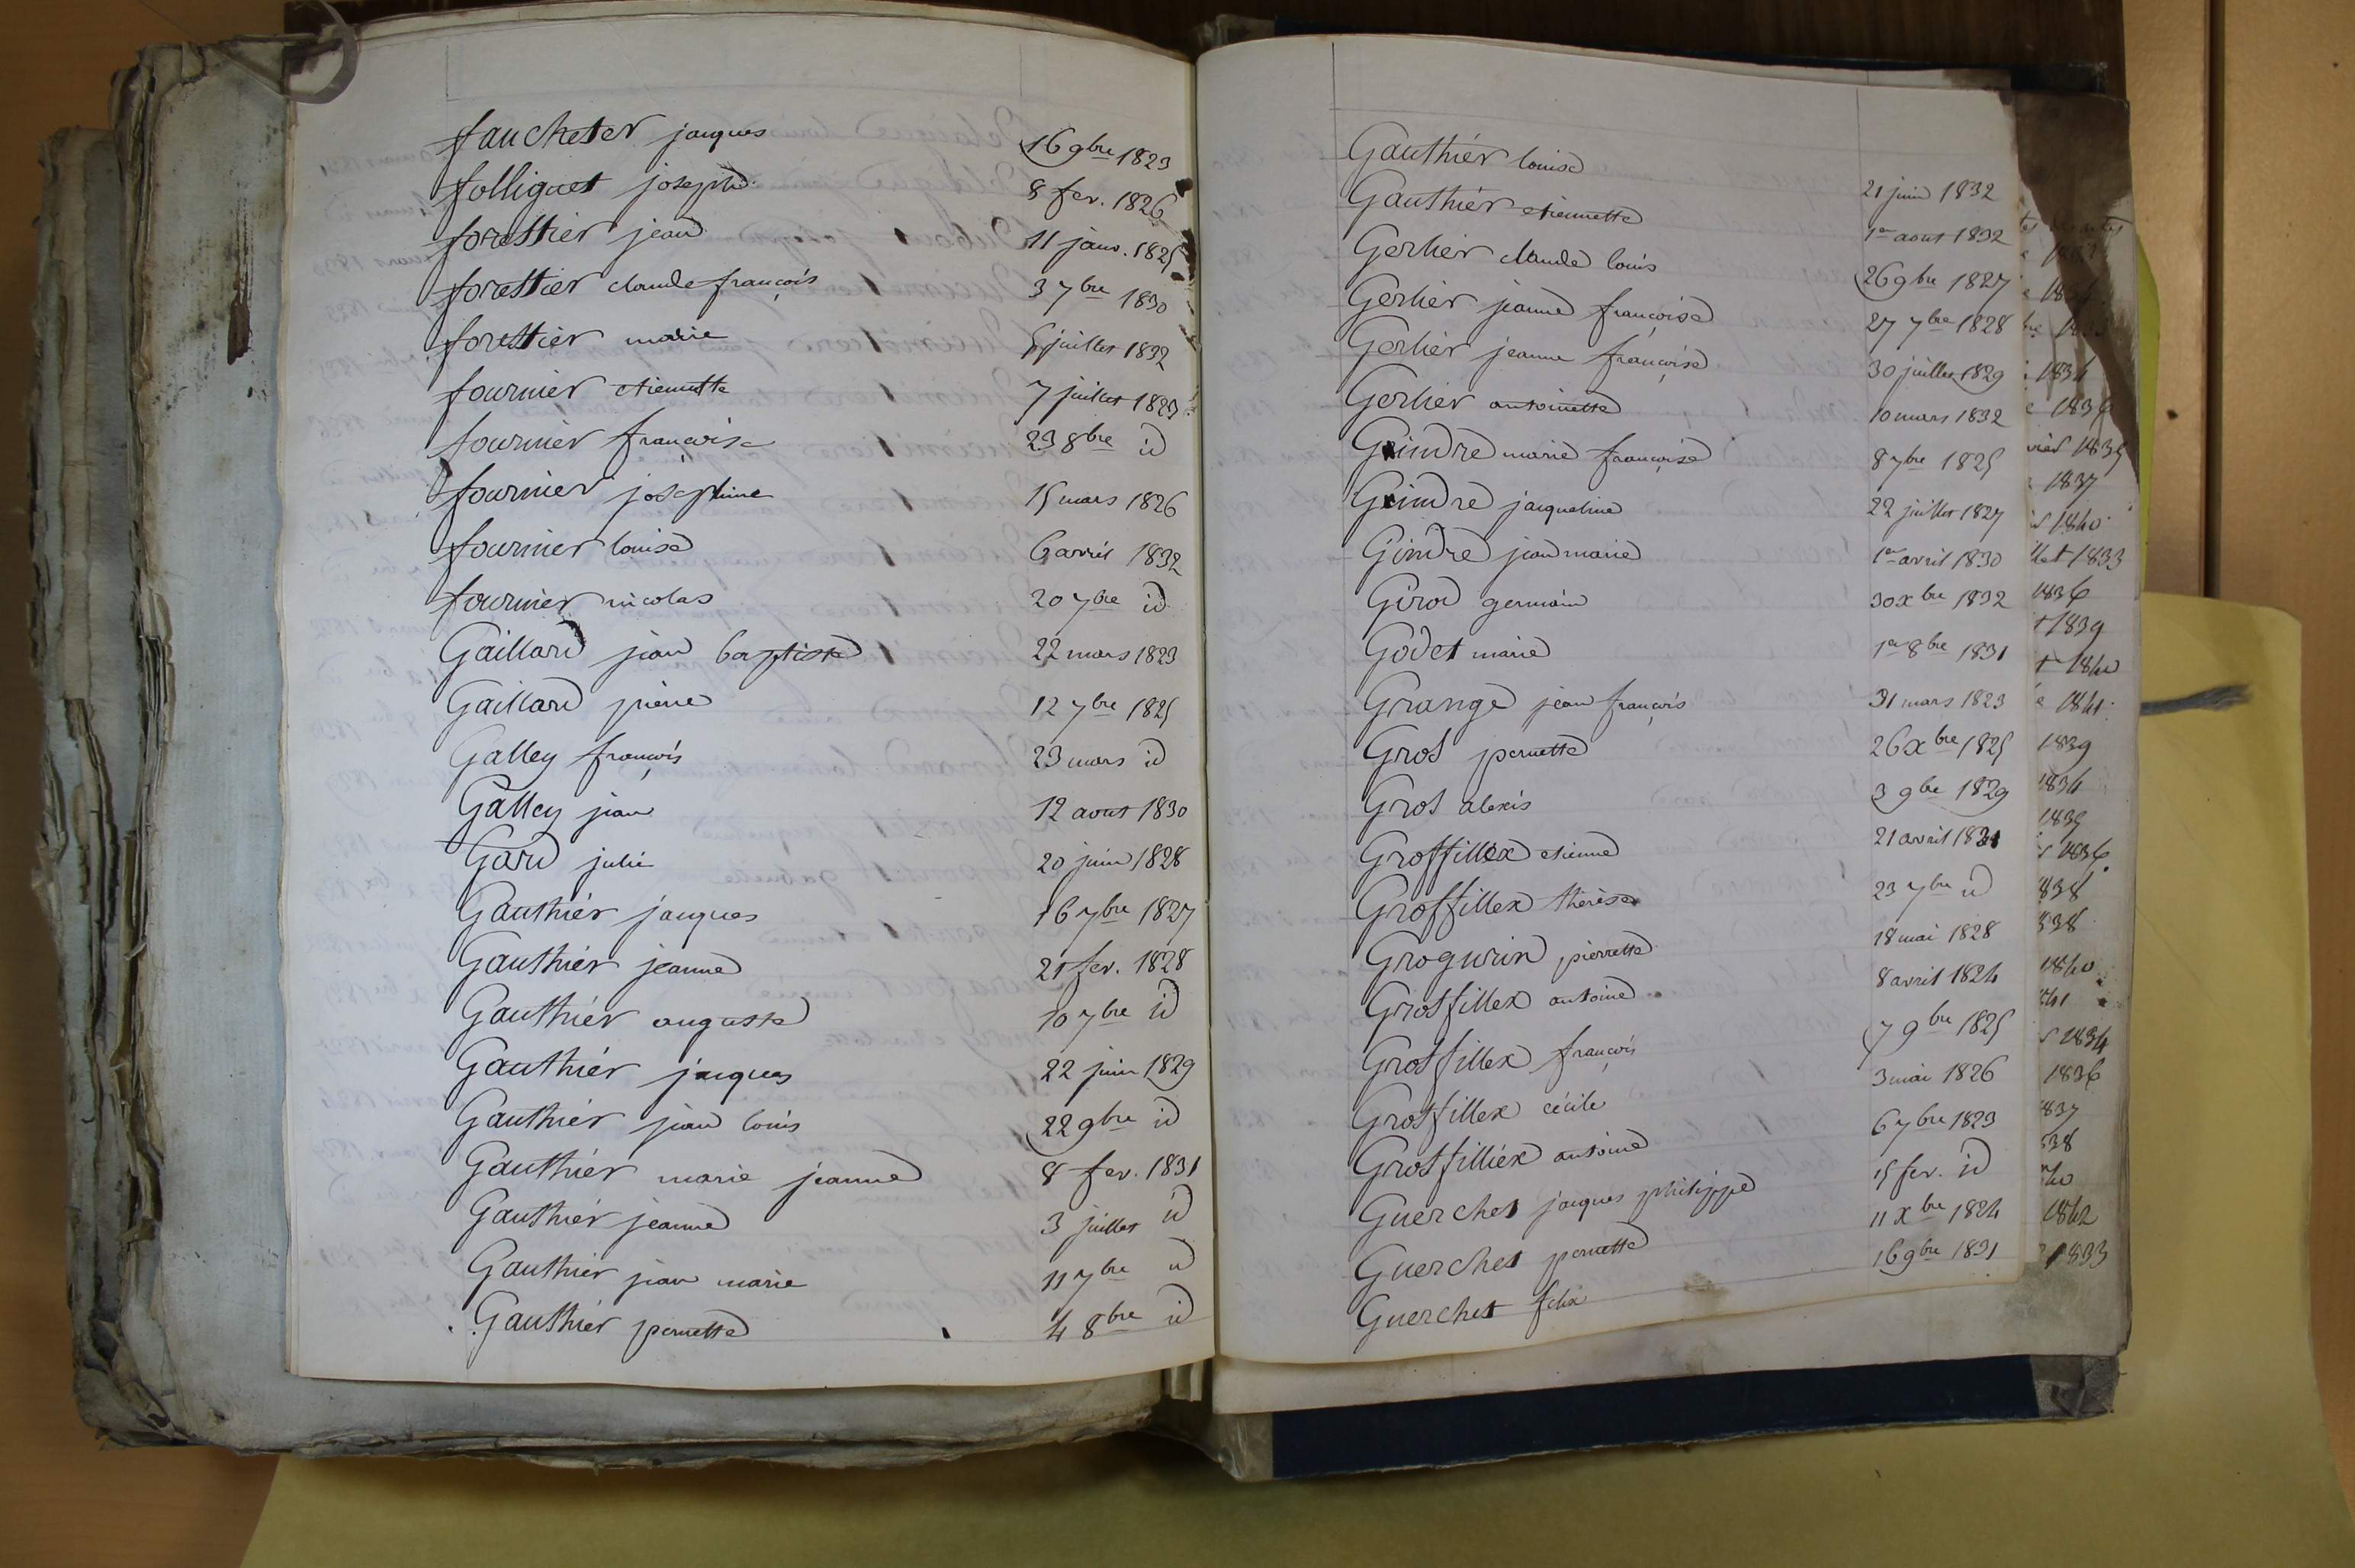 faucheter jacques 16 9bre 1823
folliguet joseph 8 fev. 1826
forestier jean 11 janv. 1825
forestier claude françois 3 7bre 1830
forestier marie 5 juillet 1832
fournier etiennette 7 juillet 1823
fournier françoise 23 8bre id
fournier josephine 15 mars 1826
fournier louise 6 avril 1832
fournier nicolas 20 7bre id
Gaillard jean baptiste 22 mars 1823
Gaillard pierre 12 7bre 1825
Galley françois 23 mars id
Galley jean 12 aout 1830
Gard julie 20 juin 1828
Gauthier jacques 16 7bre 1827
Gauthier jeanne 21 fev. 1828
Gauthier auguste 10 7bre id
Gauthier jacques 22 juin 1829
Gauthier jean louis 22 9bre id
Gauthier marie jeanne 8 fev. 1831
Gauthier jeanne 3 juillet id
Gauthier jean marie 11 7bre id
Gauthier pernette 4 8bre id
Gauthier louise 21 juin 1832
Gauthier etiennette 1er aout 1832
Gerlier claude louis 26 9bre 1827
Gerlier jeanne françoise 27 7bre 1828
Gerlier jeanne françoise 30 juillet 1829
Gerlier antoinette 10 mars 1832
Gindre marie françoise 8 7bre 1825
Gindre jacqueline 22 juillet 1827
Gindre jean marie 1er avril 1830
Girod germain 30 xbre 1832
Godet marie 1er 8bre 1831
Grange jean françois 31 mars 1823
Gros pernette 26 xbre 1825
Gros alexis 3 9bre 1829
Grosfillex etienne 21 avril 1831
Grosfillex thérèse 23 7bre id
Grogurin pierrette 18 mai 1828
Grosfillex antoine 8 avril 1824
Grosfillex françois 7 9bre 1825
Grosfillex cécile 3 mai 1826
Grosfilliex antoine 6 7bre 1823
Guerchet jacques philippe 15 fev. id
Guerchet pernette 11 xbre 1824
Guerchet felix 16 9bre 1831
1834
1836
1835
1837
1840
1833
1836
1839
1840
1841
1839
1834
1835
1836
838
838
1840
841
1834
1836
837
838
40
1842
1833